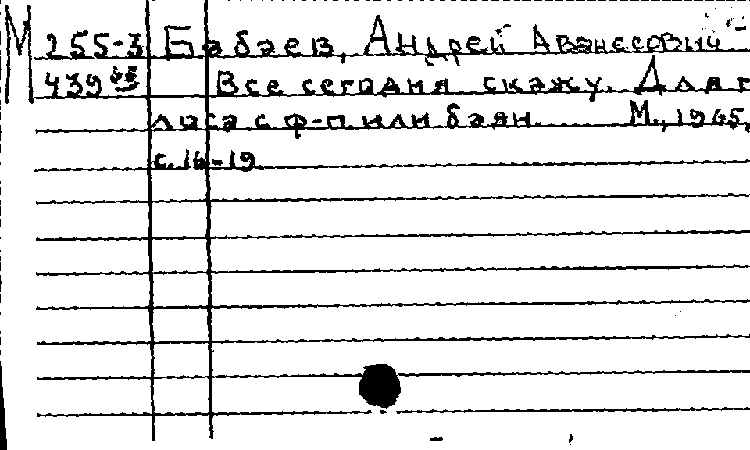 М 255-3 Бабаев, Андрей Аванесович -
439 Все сегодня скажу. Для г
лоса с ф-п. или баян. М., 1945,
с. 16-19